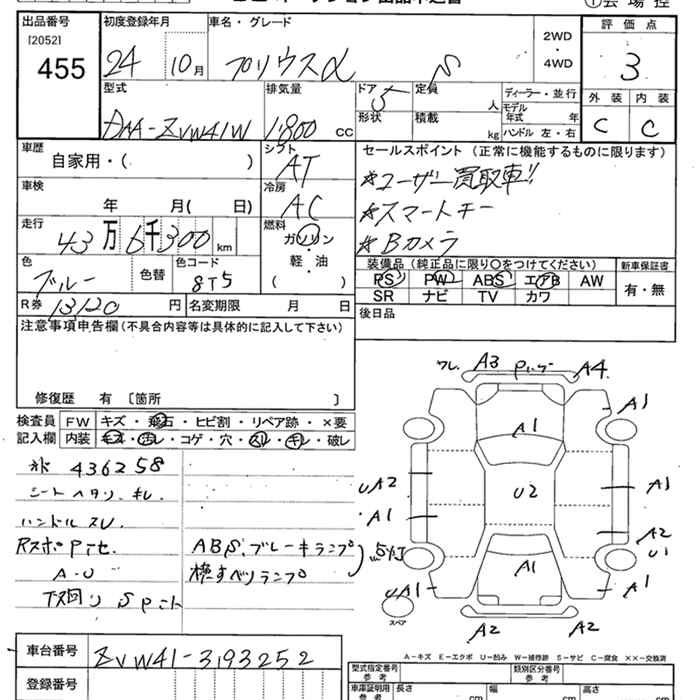 出品番号 初度登録年月 車名・グレード 2WD ・ 4WD 評価点
[2052]
455 24 10月 プリウスα S 3
型式 排気量 ドア 5 定員 人 ディーラー・並行 外装 内装
DAA-ZVW41W 1800 CC 形状 積載 kg モデル年式 年 ハンドル 左・右 C C
車歴 シフト セールスポイント (正常に機能するものに限ります)
自家用・( ) AT *ユーザー買取車!!
車検 冷房 *スマートキー
年 月( 日) AC *Bカメラ
走行 燃料
43万6千300km ガソリン・軽・油 ( )
装備品(純正品に限り○をつけてください) 新車保証書
色 色替 色コード PS PW ABS エアB AW 有・無
ブルー 8T5 SR ナビ TV カワ
R券 13120円 名変期限 月 日 後日品
注意事項申告欄(不具合内容等は具体的に記入して下さい)
修復歴 有 [箇所 ]
検査員 FW キズ・飛石・ヒビ割・リペア跡・×要
記入欄 内装 キズ・汚レ・コゲ・穴・スレ・キレ・破レ
436258
シートヘタリ、キレ
ハンドルスレ
ABS、ブレーキランプ
横すべりランプ
A-U
下回りS
ワレ A3 A4
A1 A1
U2
UA2 A1
A1 A2
U1
A1
UA1 A1
スペア
A2 A2
A-キズ E-エクボ U-凹み W-補修跡 S-サビ C-腐食 ××-交換済
車台番号 ZVW41-3193252
登録番号
型式指定番号 参考 類別区分番号 参考
車庫証明用 参考 長さ cm 幅 cm 高さ cm